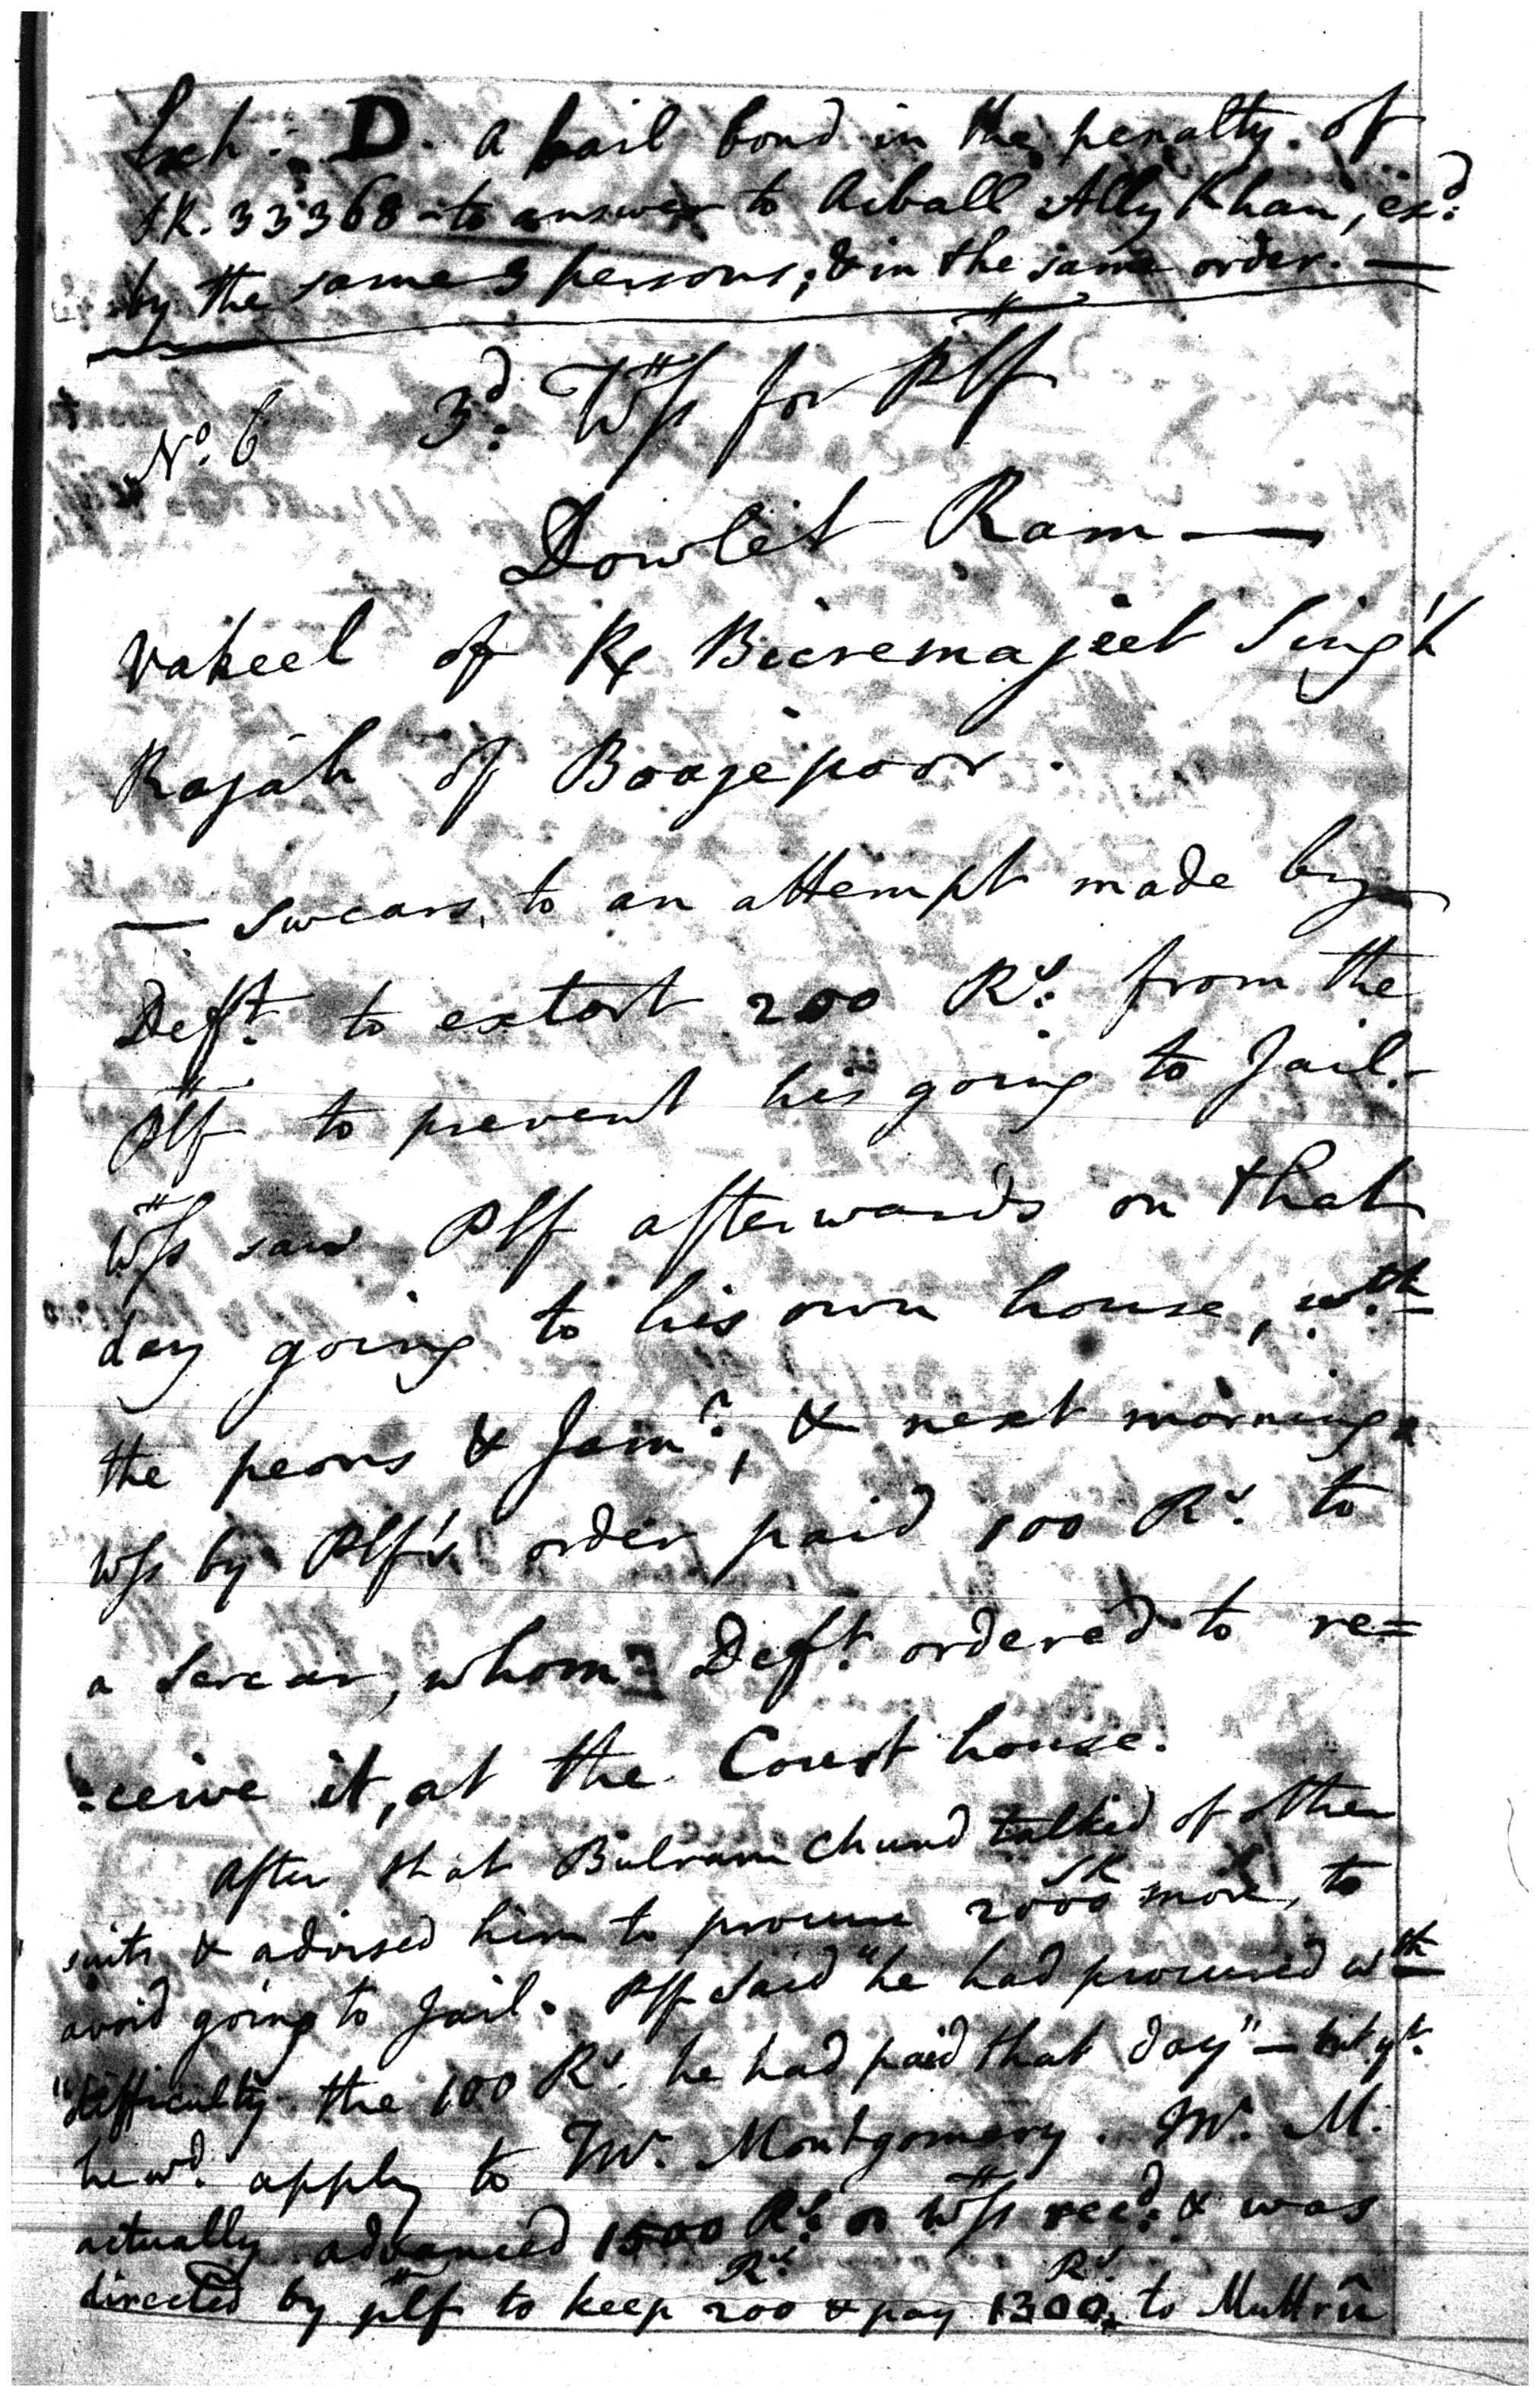 Exh: D. a bail bond in the penalty of
SR. 33368 to answer to Ally Khan, exd:
by the same 3 persons, & in the same order. —
No. 6 3d. Wss for Plf
Dowlet Ram —
Vakeel of Rx Bicremajeet Sing'h
Rajah of Boogepoor.
— Swears, to an attempt made by
Deft. to extort 200 Rs: from the
Plf to prevent his going to Jail.
Wss saw Plf afterwards on that
day going to his own house, wth
the peons & Jamr., & next morning
Wss by Plf's order paid 100 Rs. to
a Sircar, whom Deft. ordered to re=
=ceive it, at the Court house.
After that Bulram Chund talked of other
suits & advised him to procure 2000 SR more, to
avoid going to Jail. Plf said "he had procured wth
"difficulty the 100 Rs. he had paid that day" — but yt.
he wd. apply to Mr. Montgomery. Mr. M.
actually advanced 1500 Rs: wss recd: & was
directed by plf to keep 200 Rs. & pay 1300 Rs. to